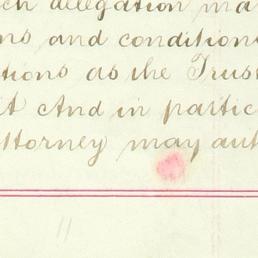 ch delegation ma
ns and condition
tions as the Trust
it And in partic
ttorney may aut
11